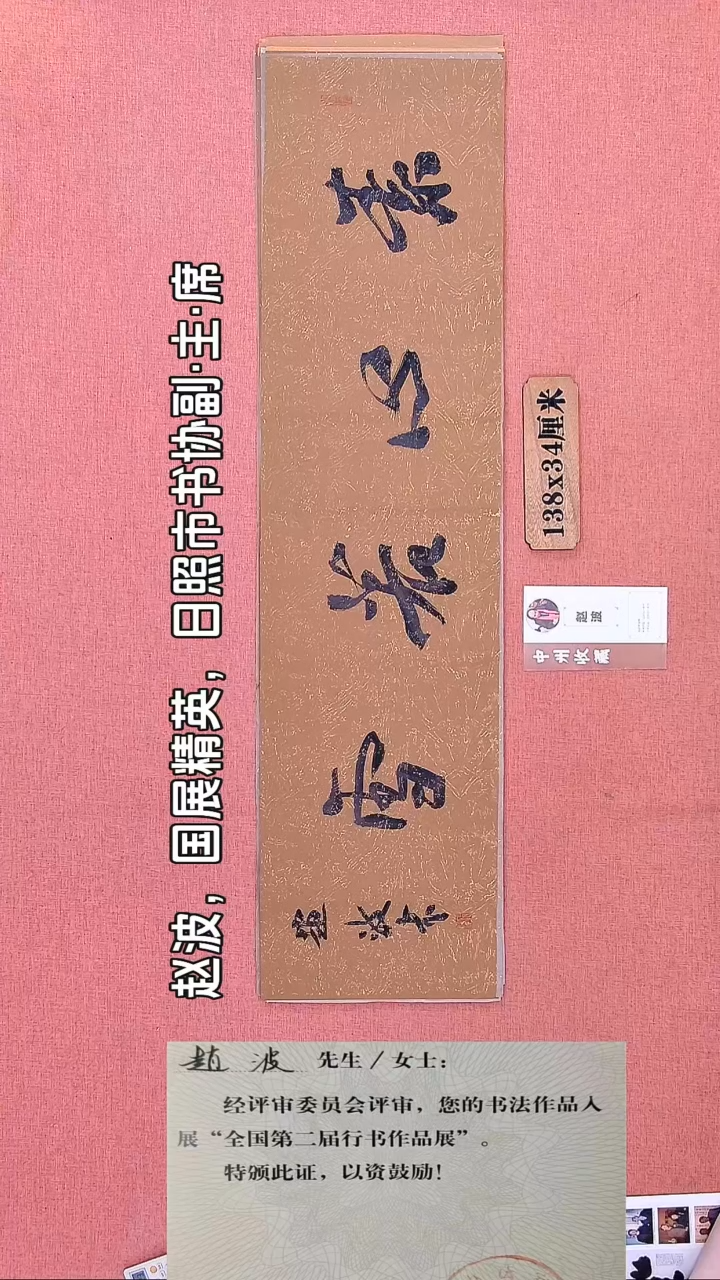 赵波，国展精英，日照市书协副·主·席
素心若雪
赵波书
138x34厘米
赵波
中州收藏
趙波 先生／女士：
经评审委员会评审，您的书法作品入
展“全国第二届行书作品展”。
特颁此证，以资鼓励！